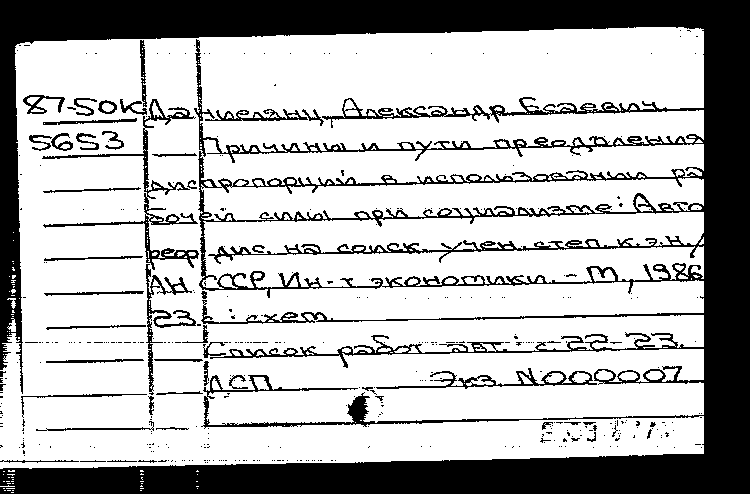 87-50К Даниелянц, Александр Есаевич.
5653 Причины и пути преодоления
диспропорций в использовании ра
бочей силы при социализме: Авто
реф. дис. на соиск. учен. степ. к.э.н./
АН СССР, Ин-т экономики. - М., 1986
23 с : схем.
Список работ авт.: с. 22-23.
ДСП. Экз. N000007